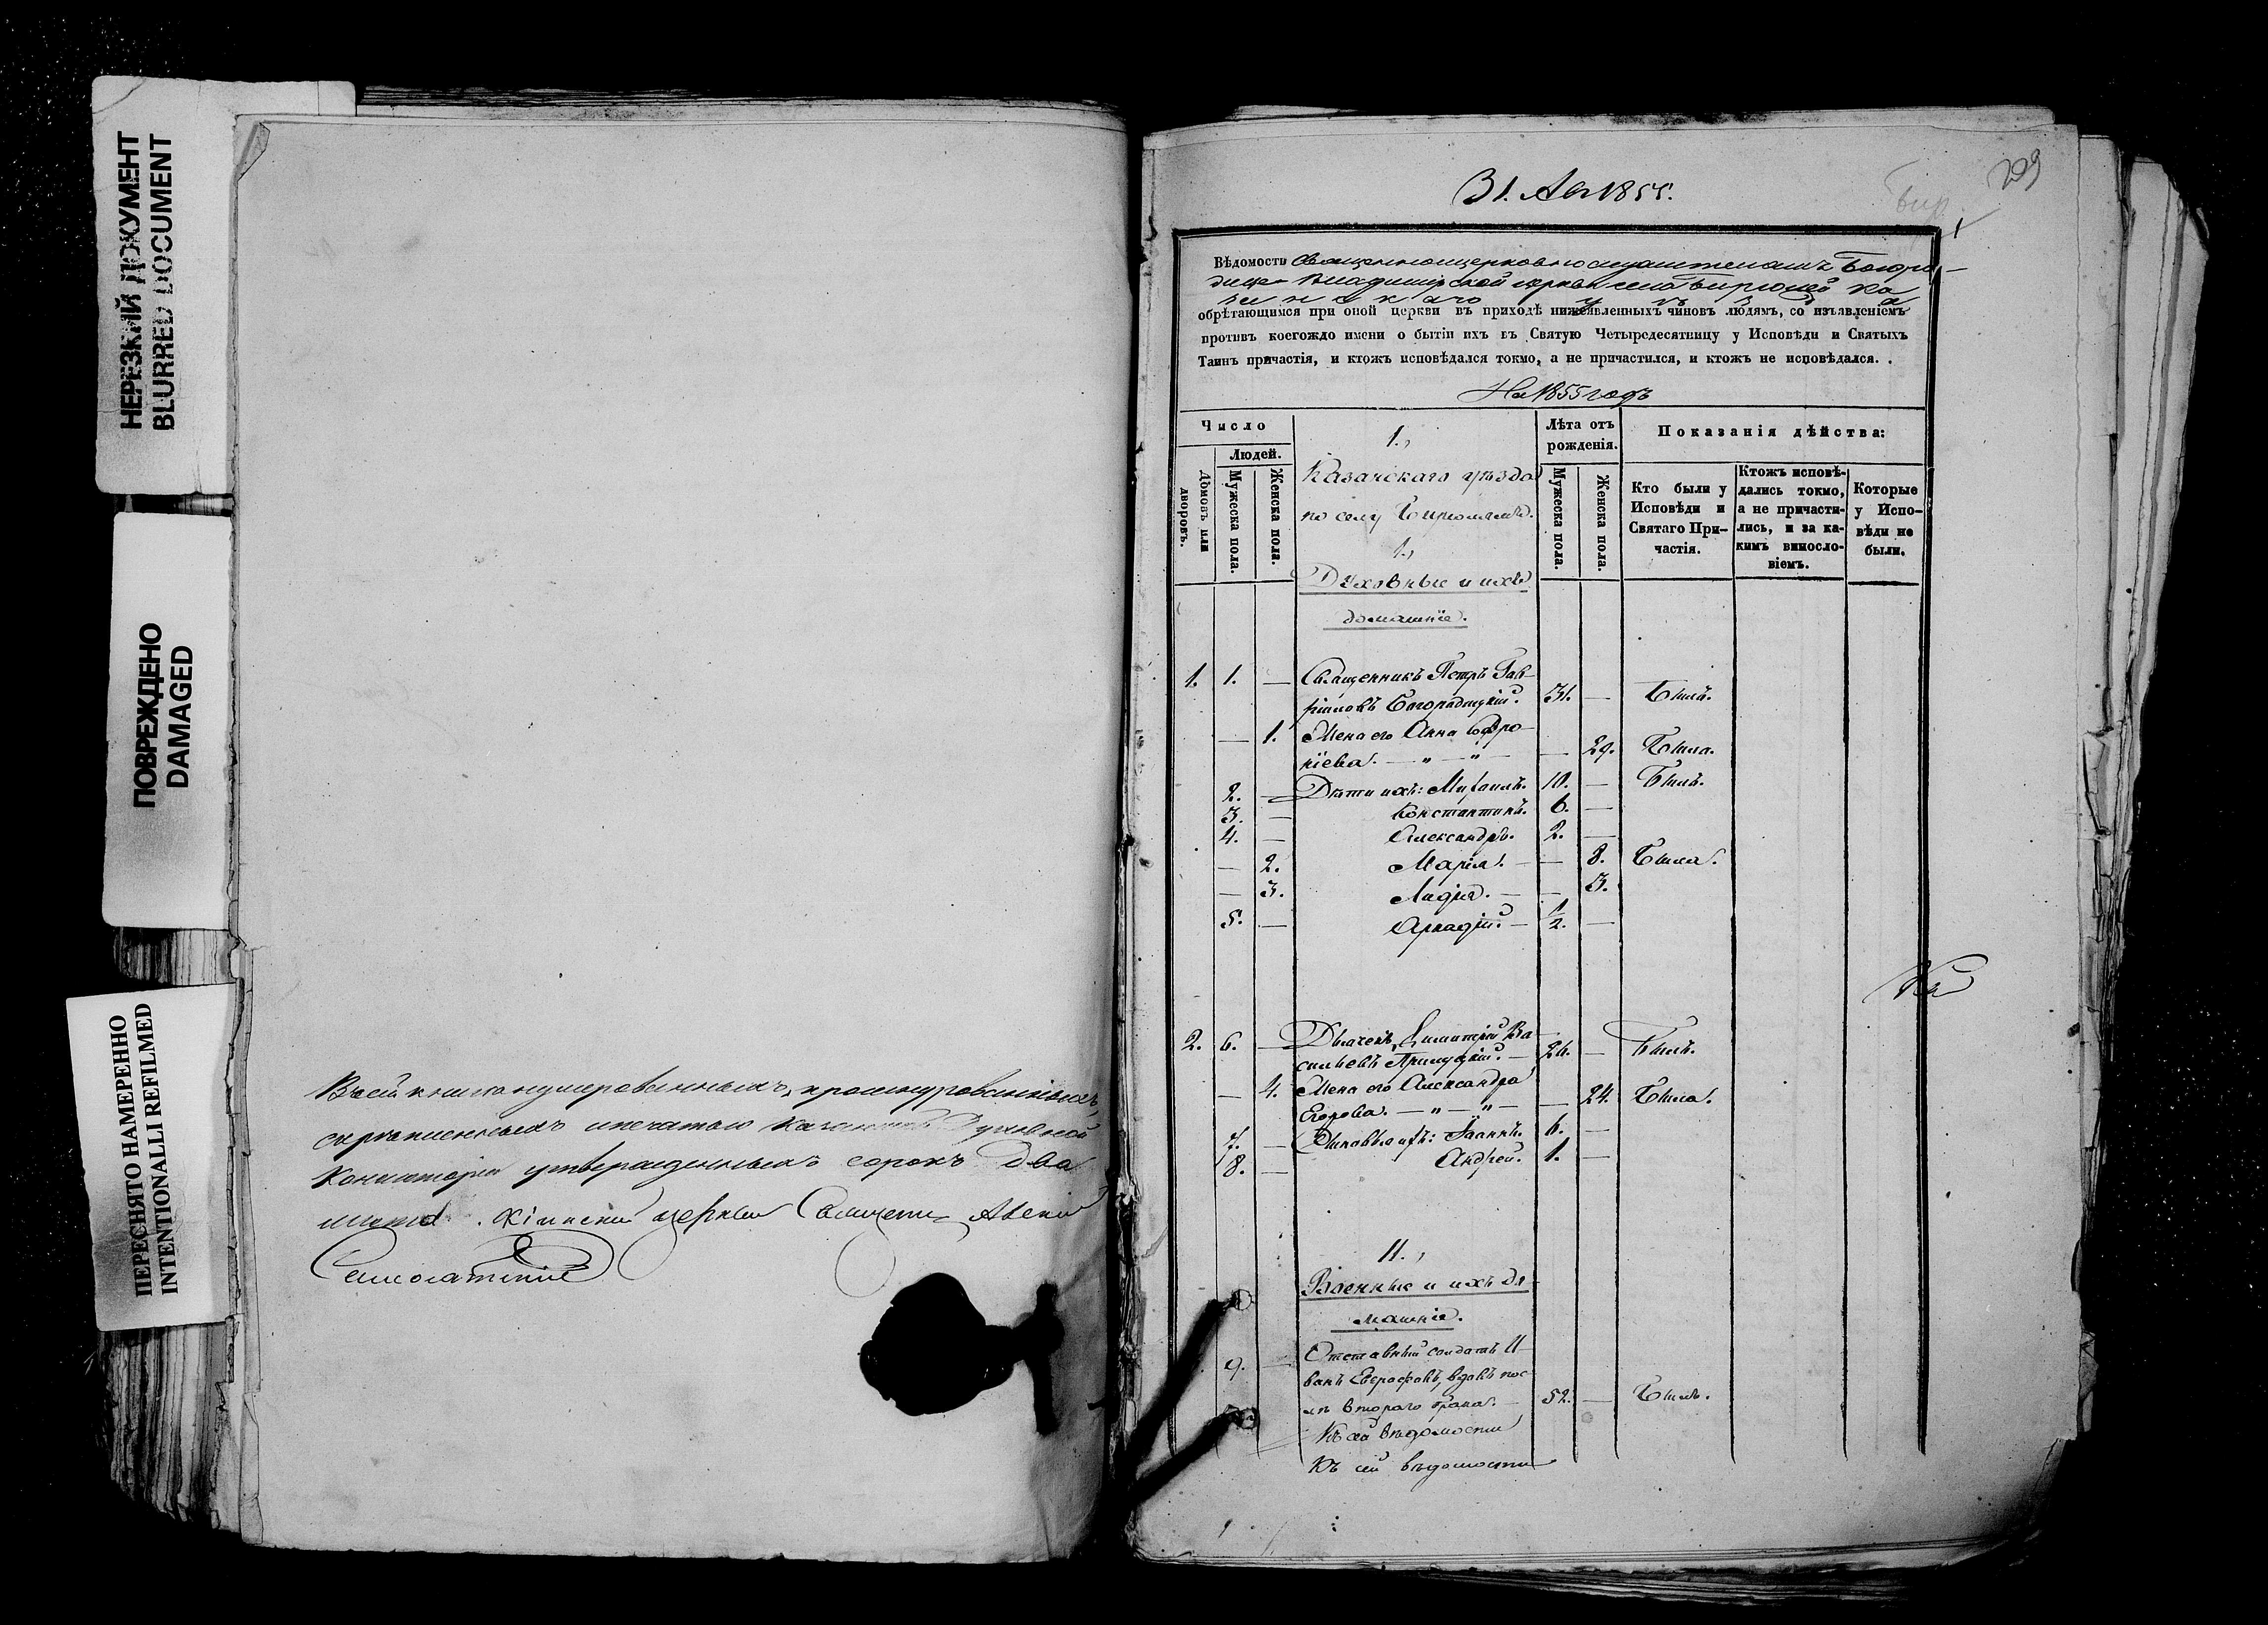 НЕРЕЗКИЙ ДОКУМЕНТ
BLURRED DOCUMENT
ПОВРЕЖДЕНО
DAMAGED
ПЕРЕСНЯТО НАМЕРЕННО
INTENTIONALLI REFILMED
Въ сей книгѣ нумерованныхъ, прошнурованныхъ,
скрѣпленныхъ и печатью Казанской Духовной
Консисторіи утвержденныхъ сорокъ два
листа. церкви Священ
31. Авг 1855.
209
Бир
1
Вѣдомость Священноцерковнослужителямъ Богоро-
дице-Владимірской церкви села Бирюлей Ка
занскаго уѣзда
обрѣтающимся при оной церкви въ приходѣ нижеявленныхъ чиновъ людямъ, со изъявленіемъ
противъ коегождо имени о бытіи ихъ въ Святую Четыредесятницу у Исповѣди и Святыхъ
Таинъ причастія, и ктожъ исповѣдался токмо, а не причастился, и ктожъ не исповѣдался.
На 1855 годъ
Число
Людей.
Домовъ или дворовъ.
Мужеска пола.
Женска пола.
1.,
Казанскаго уѣзда
по селу Бирюлямъ.
1.,
Духовные и ихъ
домашніе.
Лѣта отъ рожденія.
Мужеска пола.
Женска пола.
Показанія дѣйства:
Кто были у Исповѣди и Святаго При-частія.
Ктожъ исповѣ-дались токмо, а не причасти-лись, и за ка-кимъ винословіемъ.
Которые у Испо-вѣди не были.
1. 1. — Священникъ Петръ Гав-
ріиловъ Богородицкій. 31. — Былъ.
— 1. Жена его Анна Софро-
ніева. — „ — „ — — 29. Была.
2. — Дѣти ихъ: Михаилъ. 10. — Былъ.
3. — Константинъ. 6. —
4. — Александръ. 2. —
— 2. Марія. — — 8. Была.
— 3. Лидія. — — 3.
5. — Аркадій. — 1/2. —
2. 6. — Дьячекъ Димитрій Ва-
сильевъ Прилуцкій. — 26. — Былъ.
— 4. Жена его Александра
Егорова. — „ — „ — — 24. Была.
7. — Сыновья ихъ: Іоаннъ. 6. —
8. — Андрей. 1. —
II.,
Военные и ихъ до
машніе.
9. — Отставный солдатъ И-
ванъ Евграфовъ, вдовъ пос-
лѣ втораго брака. — 52. — Былъ.
Къ сей вѣдомости
Къ сей вѣдомости